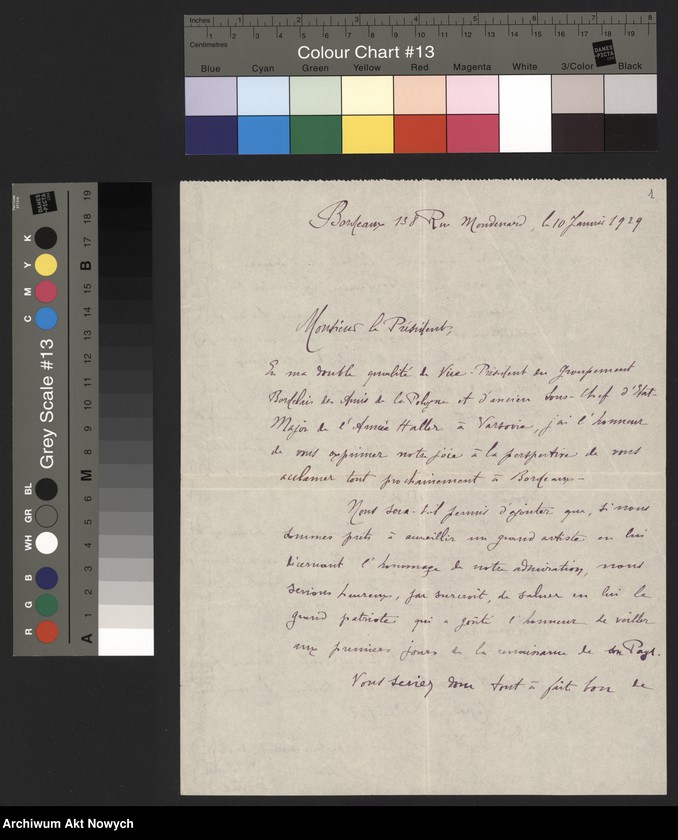 Inches 1 2 3 4 5 6 7 8
Centimetres 1 2 3 4 5 6 7 8 9 10 11 12 13 14 15 16 17 18 19
Colour Chart #13
DANES
PICTA
Blue Cyan Green Yellow Red Magenta White 3/Color Black
Grey Scale #13
R G B WH GR BL C M Y K
A 1 2 3 4 5 6 M 8 9 10 11 12 13 14 15 B 17 18 19
1
Bordeaux 138 Rue Mondenard, le 10 Janvier 1929
Monsieur le Président,
En ma double qualité de Vice-Président du Groupement
Bordelais des Amis de la Pologne et d'ancien Sous-Chef d'Etat-
Major de l'Armée Haller à Varsovie, j'ai l'honneur
de vous exprimer notre joie à la perspective de vous
acclamer tout prochainement à Bordeaux -
Nous sera-t-il permis d'ajouter que, si nous
sommes prêts à accueillir un grand artiste en lui
décernant l'hommage de notre admiration, nous
serions heureux, par surcroît, de saluer en lui le
grand patriote qui a goûté l'honneur de veiller
aux premiers jours de la renaissance de son Pays.
Vous seriez donc tout à fait bon de
Archiwum Akt Nowych